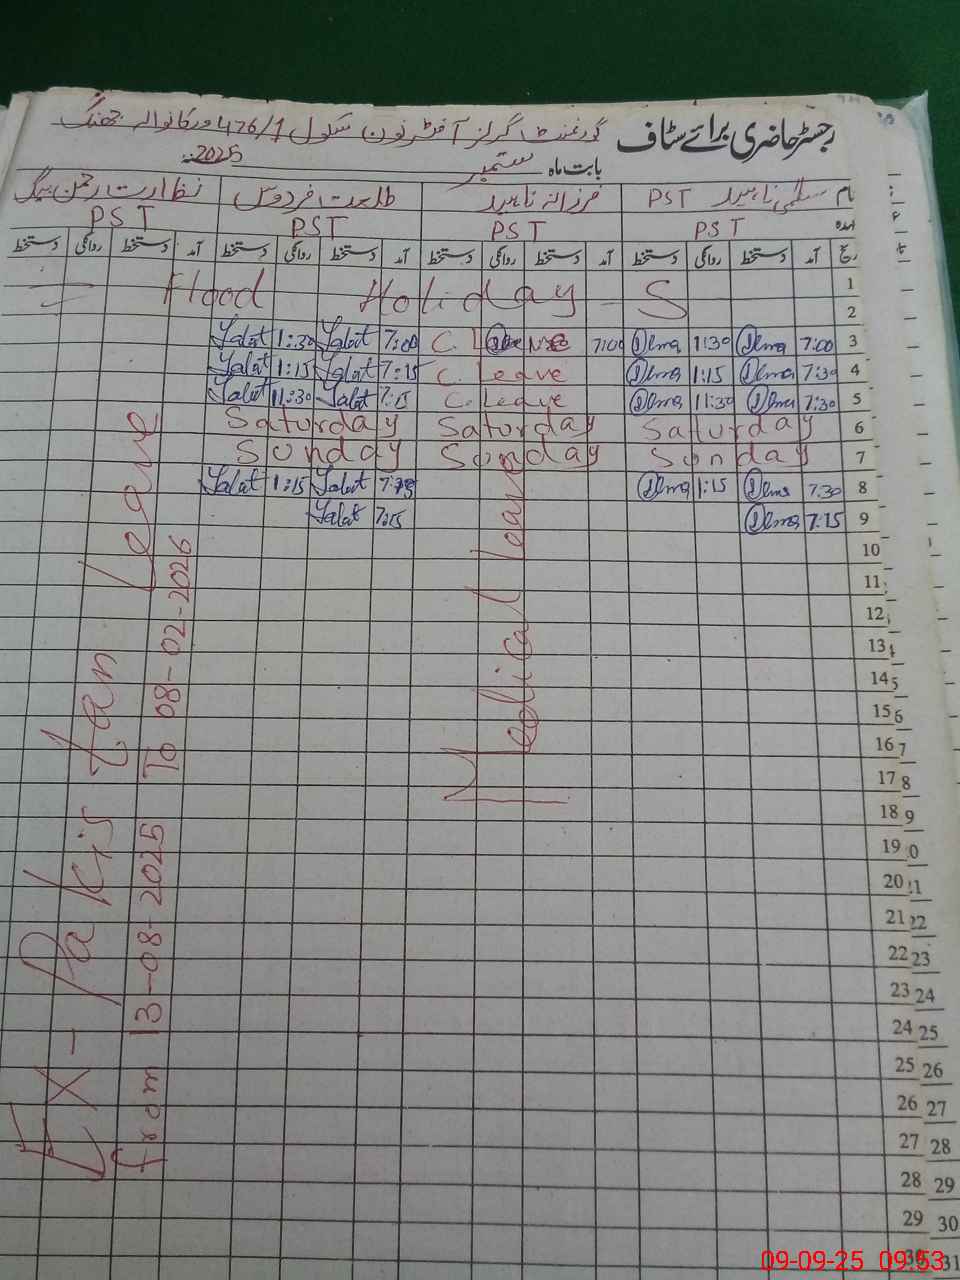 رجسٹر حاضری برائے سٹاف گورنمنٹ گرلز آفٹر نون سکول 476/1 ورکانوالہ جھنگ
بابت ماہ ستمبر 2025ء
نام سلمیٰ ناہید PST فرزانہ ناہید طلعت فردوس نظارت رحمن بیگ
عہدہ PST PST PST PST
تاریخ آمد دستخط روانگی دستخط آمد دستخط روانگی دستخط آمد دستخط روانگی دستخط آمد دستخط روانگی دستخط
1 Flood Holiday - S
2
3 7:00 1:30 7:00 C. Talat 7:00 Talat 1:30
4 7:30 1:15 C. Leave Talat 7:15 Talat 1:15
5 7:30 11:30 C. Leave Talat 7:15 Talat 11:30
6 Saturday Saturday Saturday
7 Sunday Sunday Sunday
8 7:30 1:15 Talat Talat 1:15
9 7:15 Talat 7:15
10
11
12
13
14
15
16
17
18
19
20
21
22
23
24
25
26
27
28
29
30
Medical Leave
Ex-Pakistan Leave
from 13-08-2025 To 08-02-2026
21
22
23
24
25
26
27
28
29
30
31
09-09-25 09:53